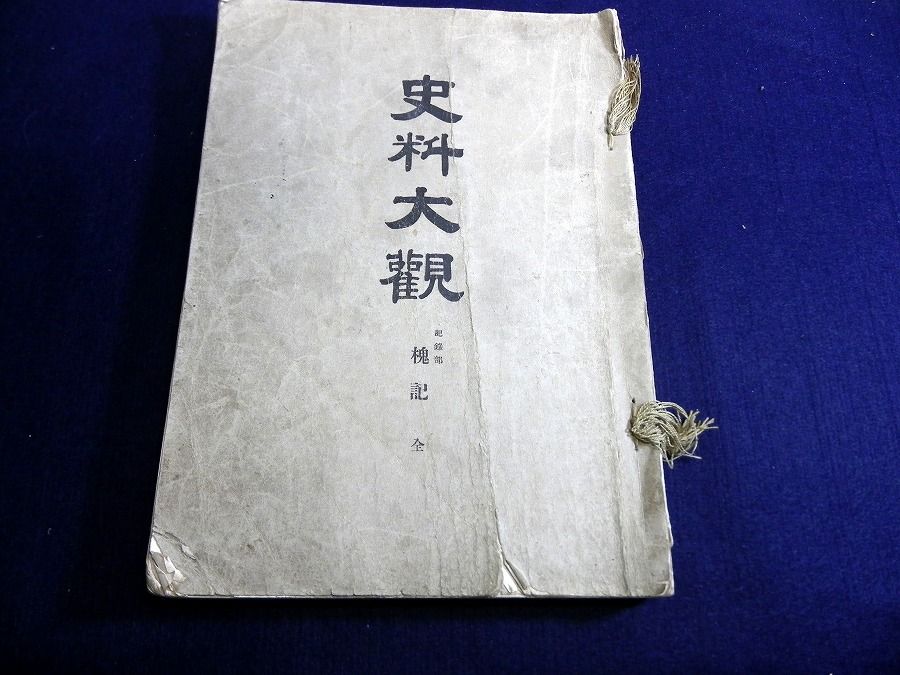 史料大觀
記錄部
槐記 全